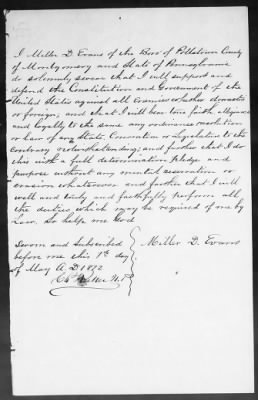 I Miller D. Evans of the Boro of Pottstown County
of Montgomery and State of Pennsylvania
do solemnly swear that I will support and
defend the Constitution and Government of the
United States against all Enemies whether domestic
or foreign, and that I will bear true faith, allegiance
and loyalty to the same any ordinance resolution
or law of any State, Convention or Legislature to the
Contrary notwithstanding; and further that I do
this with a full determination pledge and
purpose without any mental reservation or
evasion whatsoever and further that I will
well and truly and faithfully perform all
the duties which may be required of me by
Law. So help me God
Sworn and Subscribed
before me this 1st day
of May A. D 1872
N. P.
Miller D. Evans